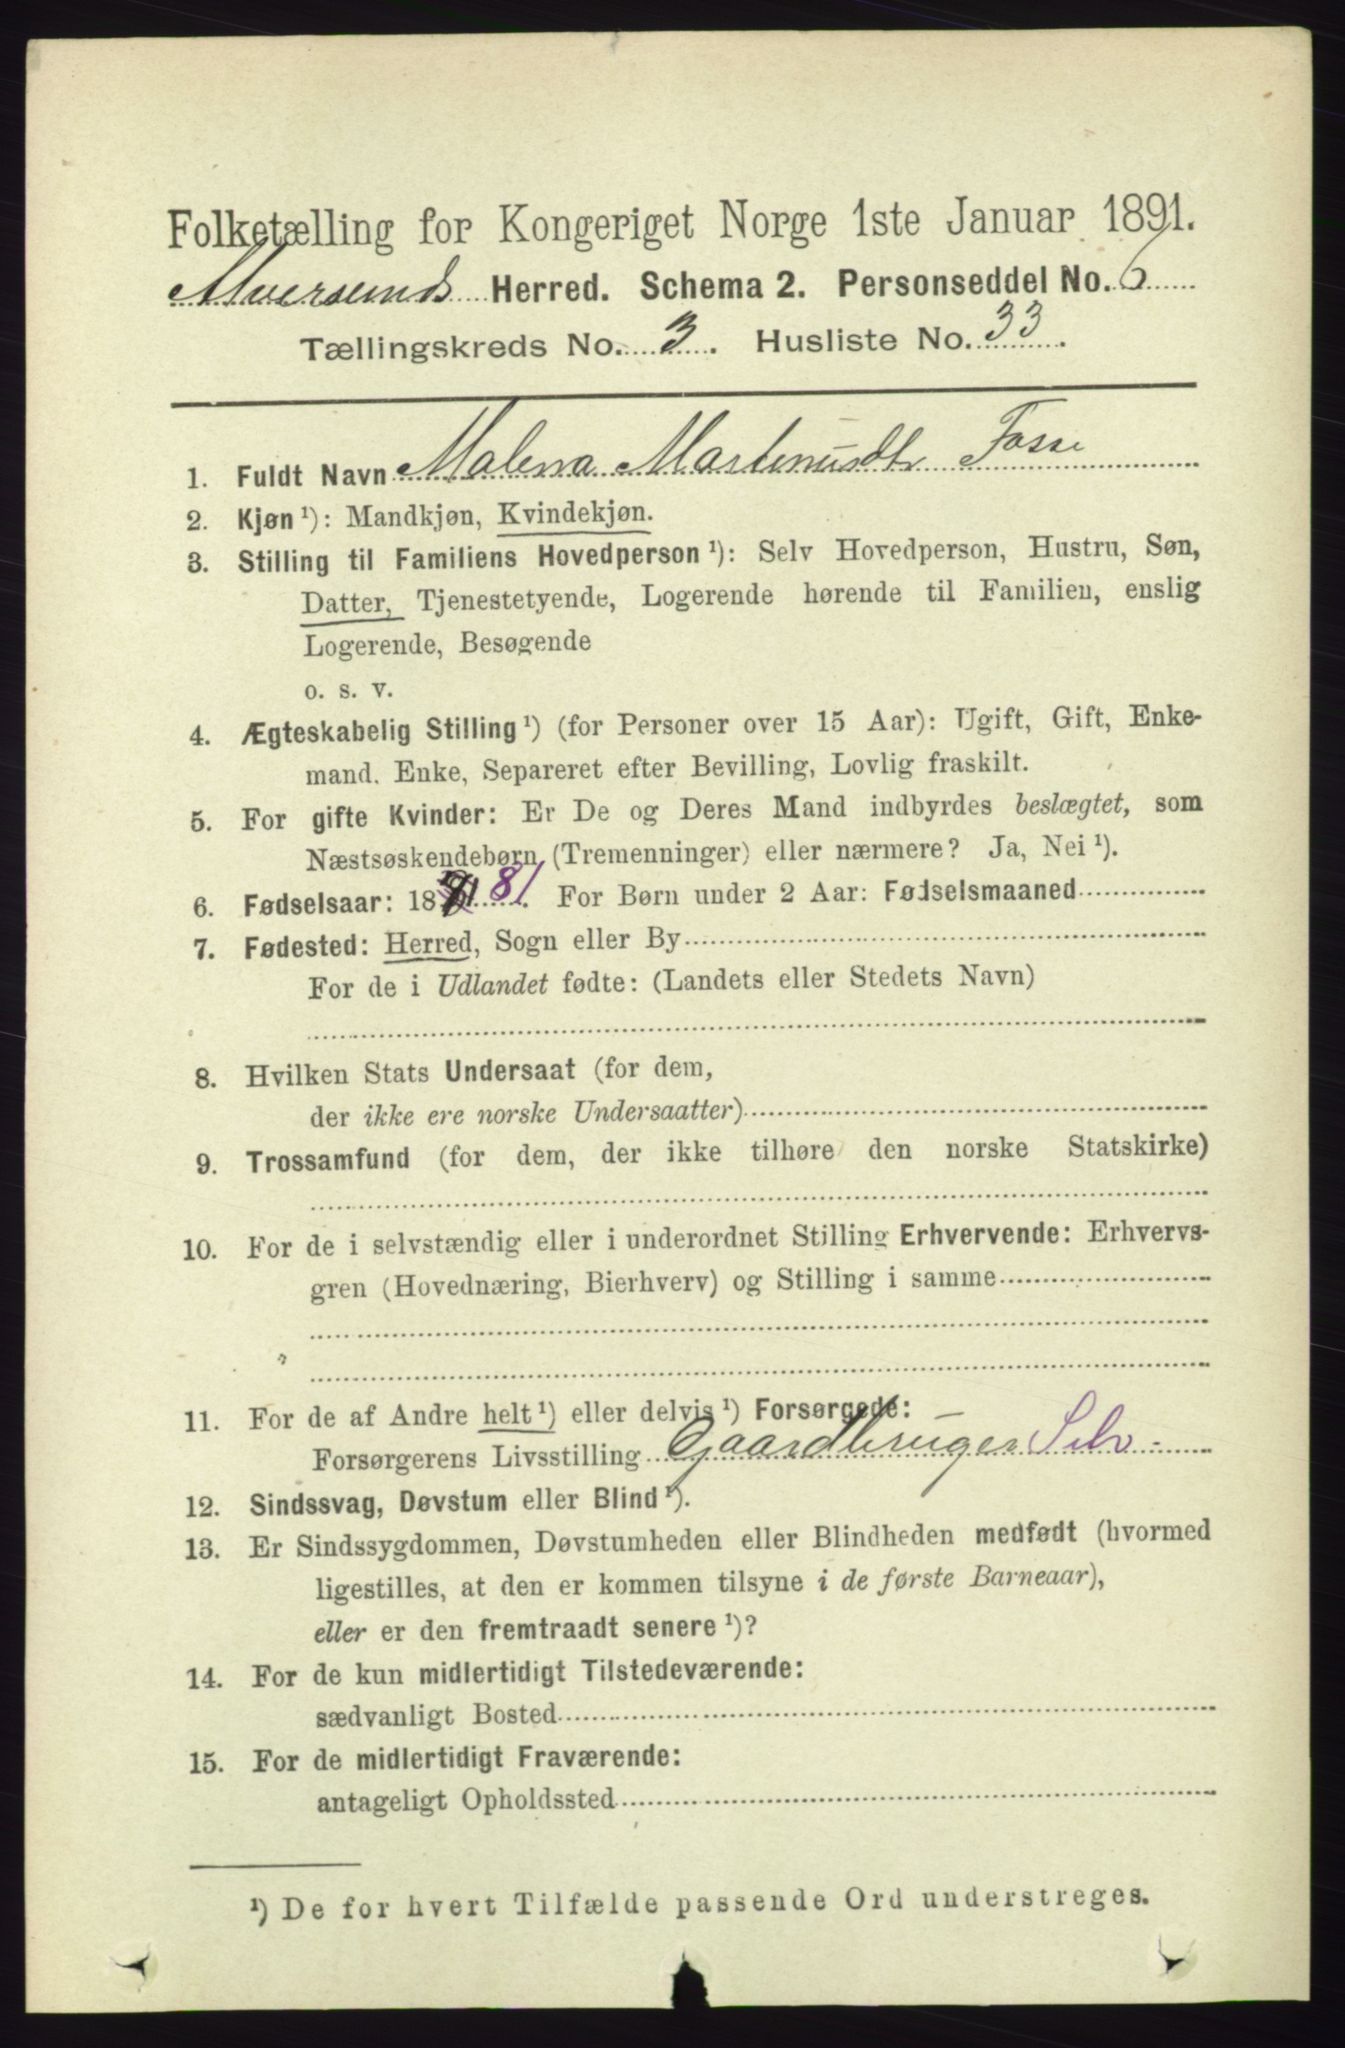 Folketælling for Kongeriget Norge 1ste Januar 1891.
Alversunds Herred. Schema 2. Personseddel No. 6
Tællingskreds No. 3. Husliste No. 33.
1. Fuldt Navn Malena Martinusdtr Fosse
2. Kjøn ¹): Mandkjøn, Kvindekjøn.
3. Stilling til Familiens Hovedperson ¹): Selv Hovedperson, Hustru, Søn,
Datter, Tjenestetyende, Logerende hørende til Familien, enslig
Logerende, Besøgende
o. s. v.
4. Ægteskabelig Stilling ¹) (for Personer over 15 Aar): Ugift, Gift, Enke-
mand, Enke, Separeret efter Bevilling, Lovlig fraskilt.
5. For gifte Kvinder: Er De og Deres Mand indbyrdes beslægtet, som
Næstsøskendebørn (Tremenninger) eller nærmere? Ja, Nei ¹).
6. Fødselsaar: 18 81. For Børn under 2 Aar: Fødselsmaaned
7. Fødested: Herred, Sogn eller By
For de i Udlandet fødte: (Landets eller Stedets Navn)
8. Hvilken Stats Undersaat (for dem,
der ikke ere norske Undersaatter)
9. Trossamfund (for dem, der ikke tilhøre den norske Statskirke)
10. For de i selvstændig eller i underordnet Stilling Erhvervende: Erhvervs-
gren (Hovednæring, Bierhverv) og Stilling i samme
11. For de af Andre helt ¹) eller delvis ¹) Forsørgede:
Forsørgerens Livsstilling Gaardbruger Selv.
12. Sindssvag, Døvstum eller Blind ¹).
13. Er Sindssygdommen, Døvstumheden eller Blindheden medfødt (hvormed
ligestilles, at den er kommen tilsyne i de første Barneaar),
eller er den fremtraadt senere ¹)?
14. For de kun midlertidigt Tilstedeværende:
sædvanligt Bosted
15. For de midlertidigt Fraværende:
antageligt Opholdssted
¹) De for hvert Tilfælde passende Ord understreges.